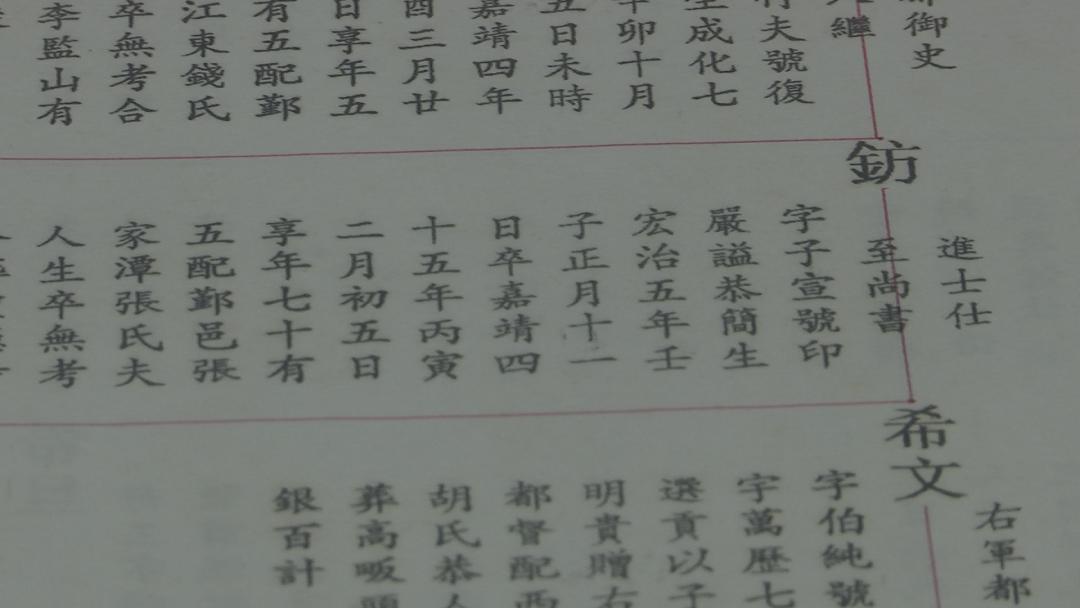 御史
繼
夫號復
成化七
卯十月
五日未時
嘉靖四年
酉三月廿
日享年五
有五配鄞
江東錢氏
卒無考合
李監山有
鈁
進士仕
至尚書
字子宣號印
嚴謚恭簡生
宏治五年壬
子正月十一
日卒嘉靖四
十五年丙寅
二月初五日
享年七十有
五配鄞邑張
家潭張氏夫
人生卒無考
希文
右軍都
字伯純號
字萬歷七
選貢以子
明貴贈右
都督配西
胡氏恭人
葬高畈
銀百計